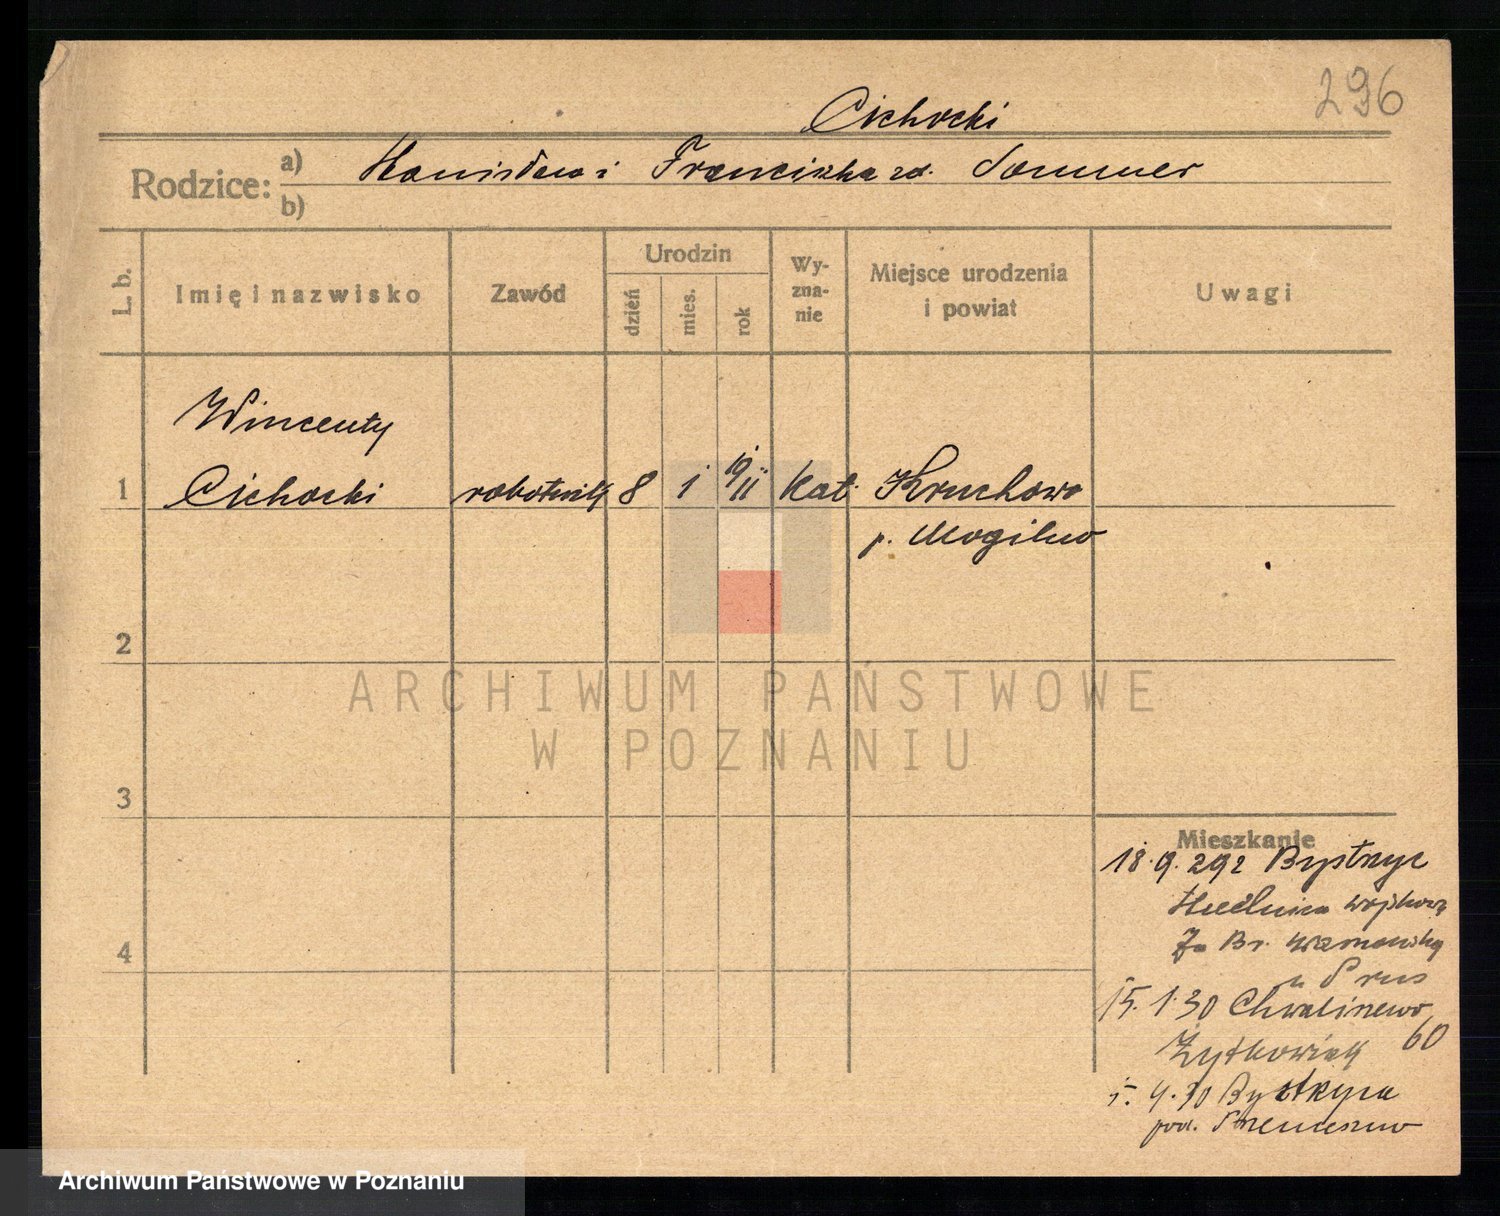 296
Cichocki
Rodzice: a) Stanisław i Franciszka zd. Sommer
b)
L. b.
Imię i nazwisko
Zawód
Urodzin
dzień
mies.
rok
Wy-
zna-
nie
Miejsce urodzenia
i powiat
Uwagi
Wincenty
1 Cichocki robotnik 8 1 1911 kat. Kruchowo
p. Mogilno
2
3
4
Mieszkanie
18.9.29 z Bystrzyc
wojskowa
Br.
u Prus
15.1.30 Chwaliszewo
60
Żytkowiak
4.30 Bystrzyca
pod.
ARCHIWUM PAŃSTWOWE
W POZNANIU
Archiwum Państwowe w Poznaniu